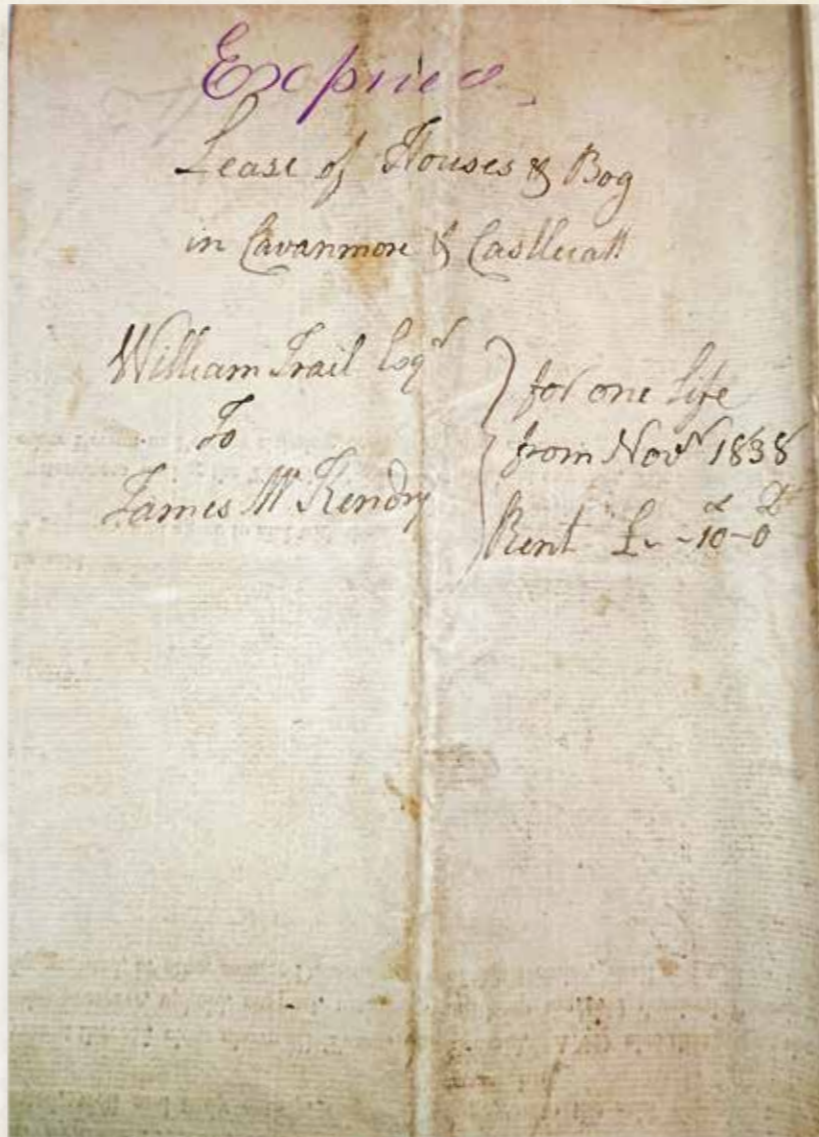 Expired
Lease of Houses & Bog
in Cavanmore & Castlecatt
William Trail Esqr
To
James McKendry
for one life
from Novr 1838
Rent £ - 10 - 0